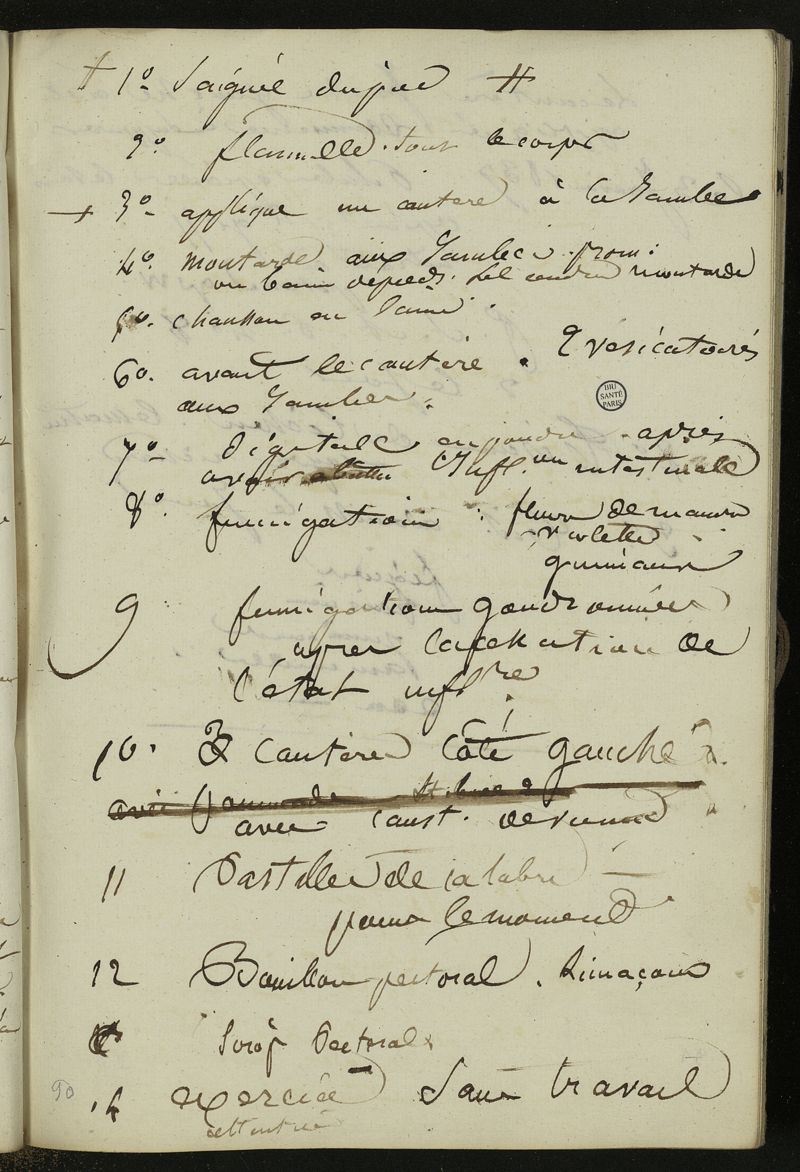 + 1° Saignée du pied #
2° flannelle . tout le corps
+ 3° applique un cautere à la Jambe
4° moutarde aux Jambes . prom :
ou bain depieds . Sel cendre moutarde
5° . chausson en laine .
60 . avant le cautère . 2 vesicatoires
BIU SANTÉ PARIS
aux Jambes .
7° digitale en poudre . après
avoir abattu l'infl.on intestinale
8° . fumigation : fleurs de mauve
violette
guimauve
9 fumigations goudronnées
apres la cessation de
l'état inflre .
10 . 3 cautères côté gauche
avec pommade
avec caust . de vienne
11 Pastilles de calabre
pour le moment
12 Bouillon pectoral . Limaçons
Sirop Pectoral
14 exercice Sans travail
90